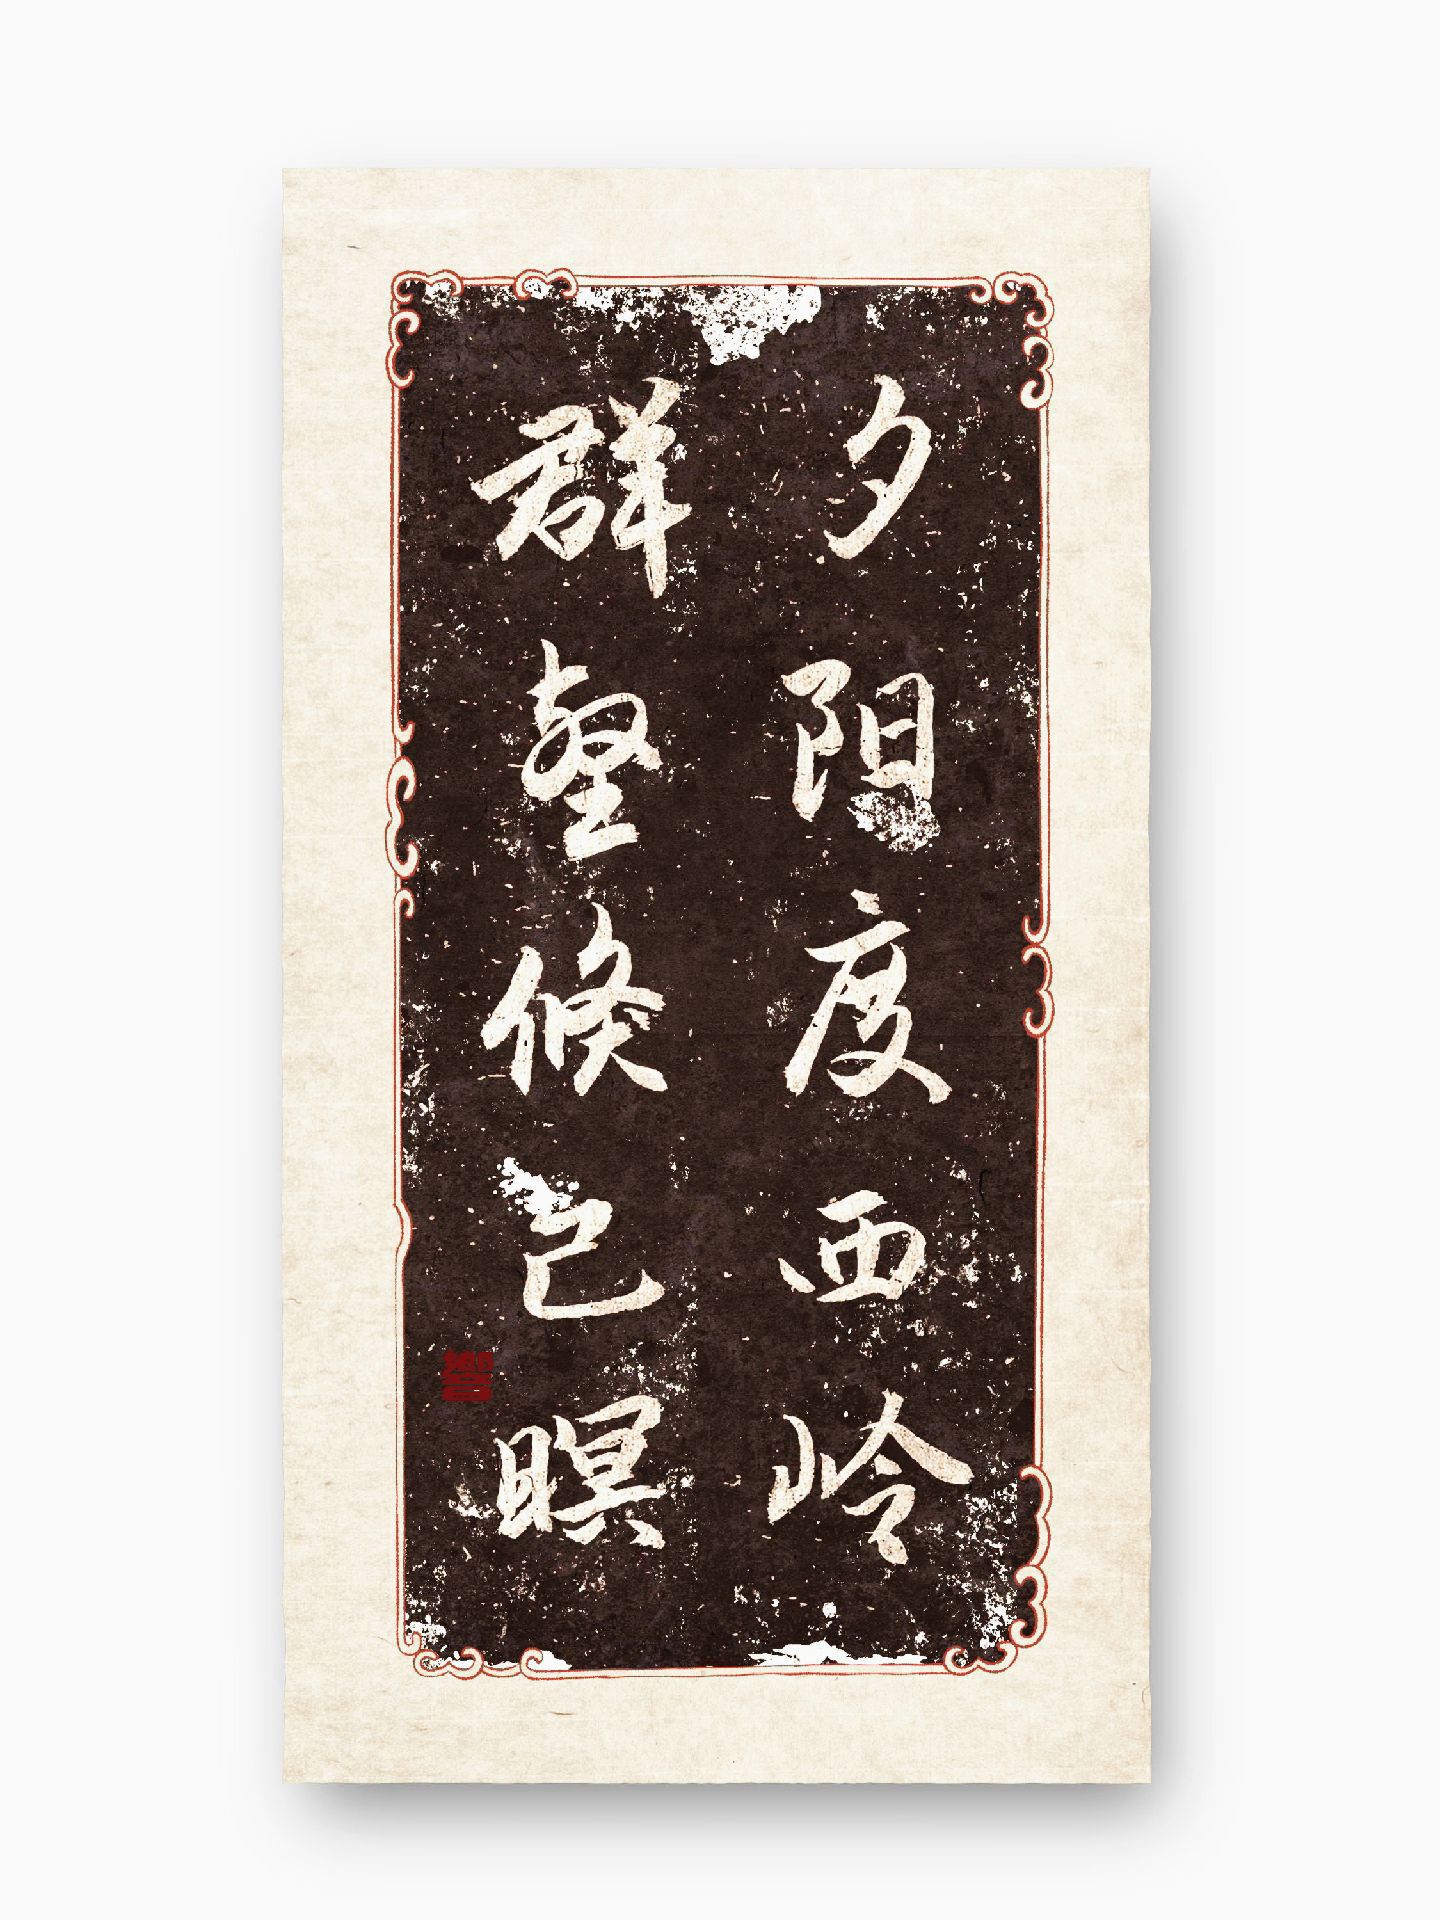 夕阳度西岭
群壑倏已暝